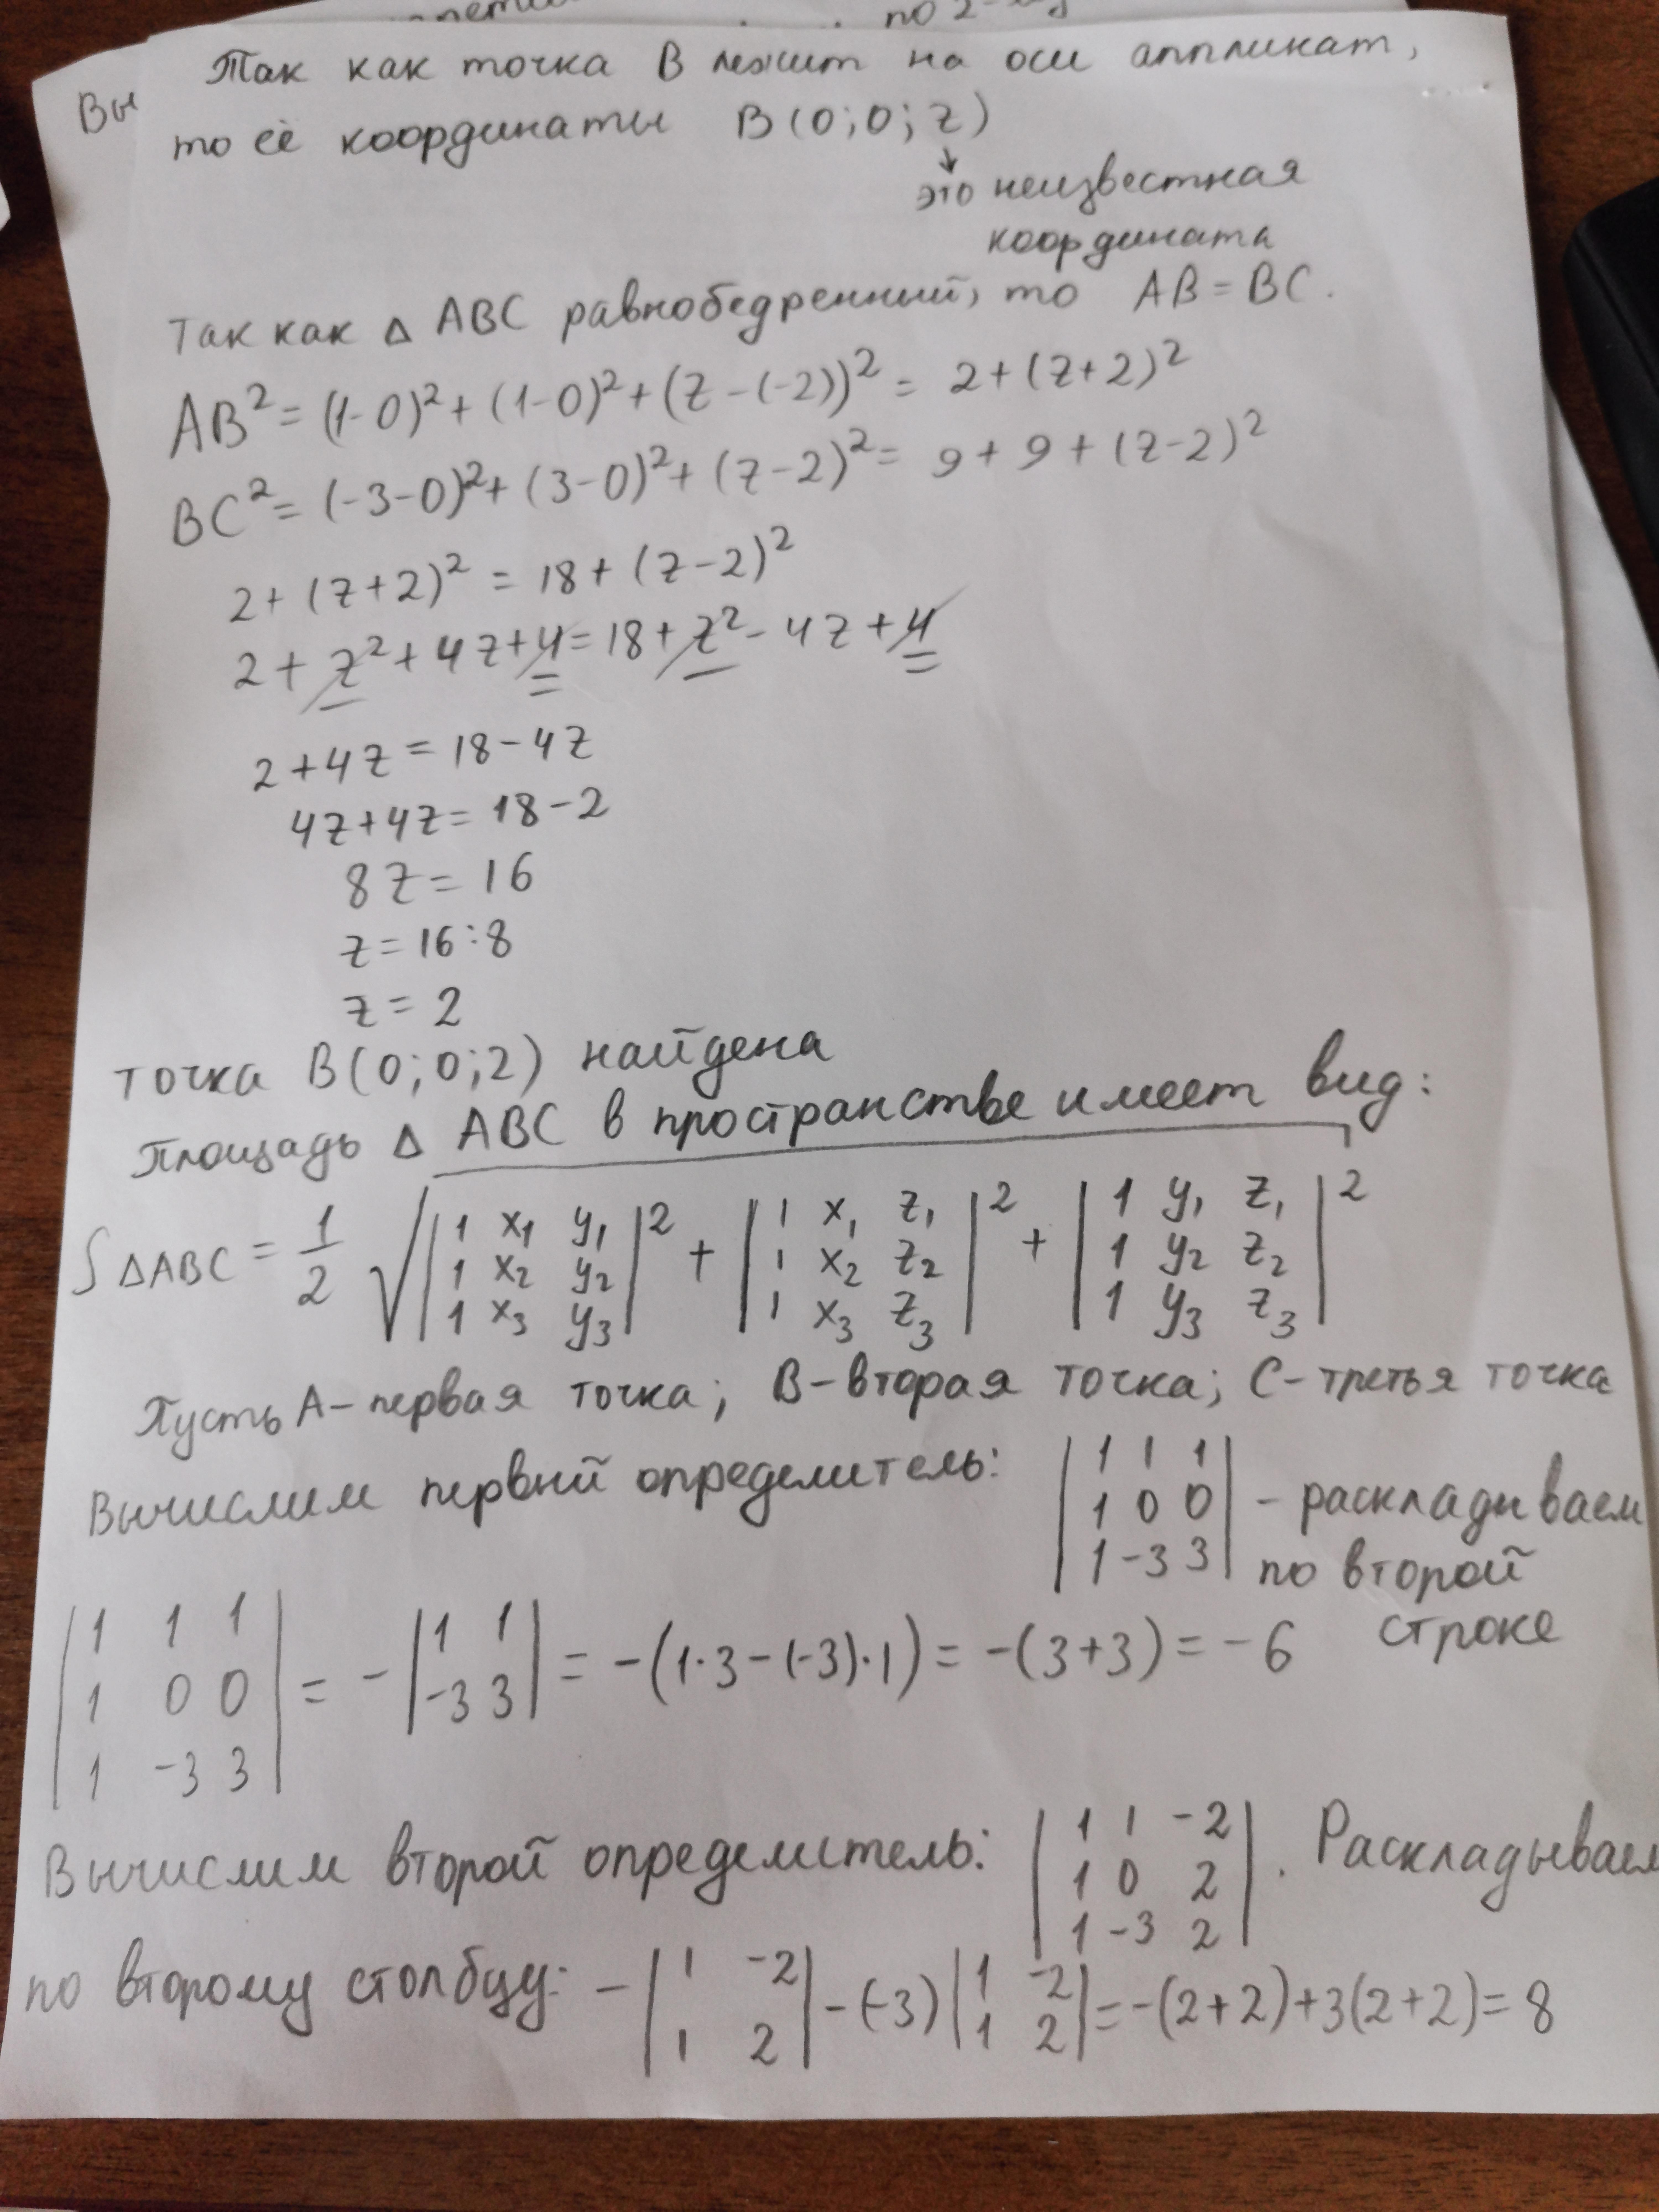 по 2-
Вы
Так как точка В лежит на оси аппликат,
то её координаты В(0;0;z)
↓
это неизвестная
координата
Так как △ АВС равнобедренный, то АВ=ВС.
АВ²=(1-0)²+(1-0)²+(z-(-2))²= 2+(z+2)²
ВС²=(-3-0)²+(3-0)²+(z-2)²= 9+9+(z-2)²
2+(z+2)²=18+(z-2)²
2+z²+4z+4=18+z²-4z+4
2+4z=18-4z
4z+4z=18-2
8z=16
z=16:8
z=2
точка В(0;0;2) найдена
Площадь △ АВС в пространстве имеет вид:
S △АВС = 1/2 √(|1 x₁ y₁; 1 x₂ y₂; 1 x₃ y₃|² + |1 x₁ z₁; 1 x₂ z₂; 1 x₃ z₃|² + |1 y₁ z₁; 1 y₂ z₂; 1 y₃ z₃|²)
Пусть А-первая точка; В-вторая точка; С-третья точка
Вычислим первый определитель: |1 1 1; 1 0 0; 1 -3 3| - раскладываем
по второй
строке
|1 1 1; 1 0 0; 1 -3 3| = -|1 1; -3 3| = -(1·3-(-3)·1) = -(3+3) = -6
Вычислим второй определитель: |1 1 -2; 1 0 2; 1 -3 2|. Раскладываем
по второму столбцу: -|1 -2; 1 2| -(-3)|1 -2; 1 2|=-(2+2)+3(2+2)=8